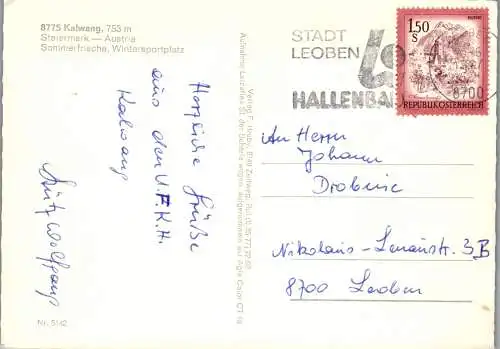 8775 Kalwang, 753 m
Steiermark — Austria
Sommerfrische, Wintersportplatz
Herzliche Grüße
aus dem U.K.H.
Kalwang
Wolfgang
Nr. 5142
Verlag F.
STADT
LEOBEN
HALLENBAD
8700
1.50
S
REPUBLIK ÖSTERREICH
An Herrn
Johann
Drobinc
Nikolaus-Lenaustr. 3B
8700 Leoben